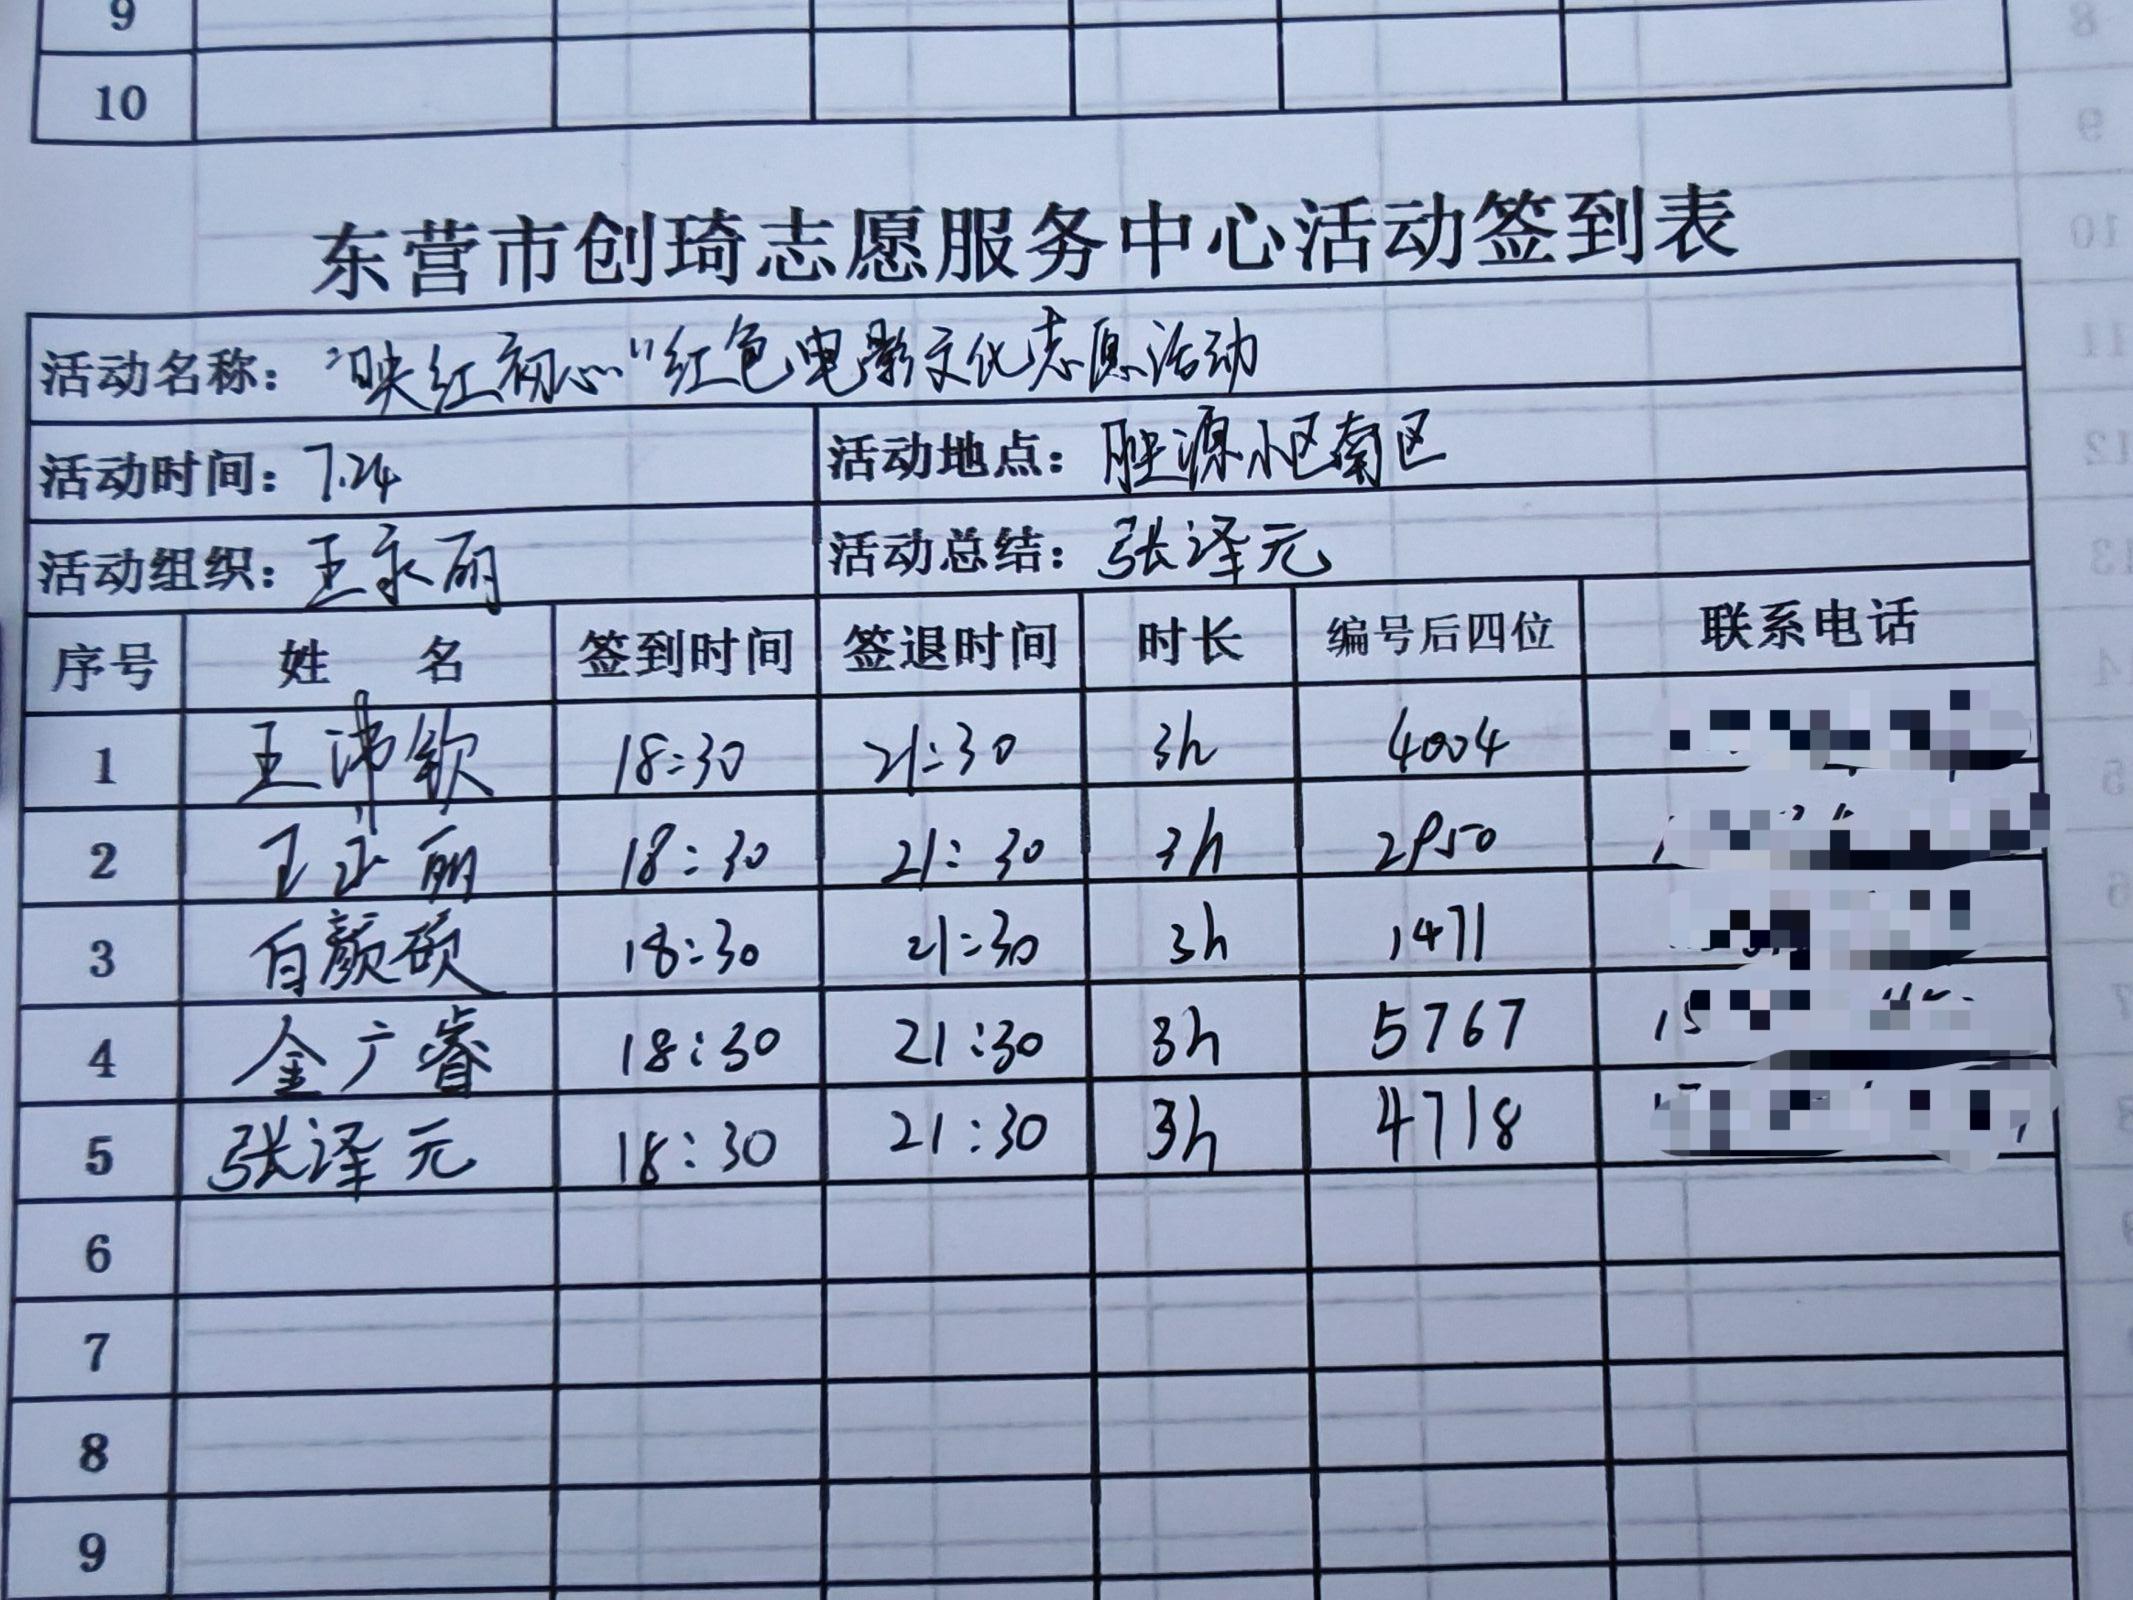 9
10
东营市创琦志愿服务中心活动签到表
活动名称："映红初心"红色电影文化志愿活动
活动时间：7.24 活动地点：胜源小区南区
活动组织：王永丽 活动总结：张泽元
序号 姓 名 签到时间 签退时间 时长 编号后四位 联系电话
1 王沛钦 18:30 21:30 3h 4004
2 王永丽 18:30 21:30 3h 2950
3 白颜硕 18:30 21:30 3h 1471
4 金广睿 18:30 21:30 3h 5767 15
5 张泽元 18:30 21:30 3h 4718
6
7
8
9